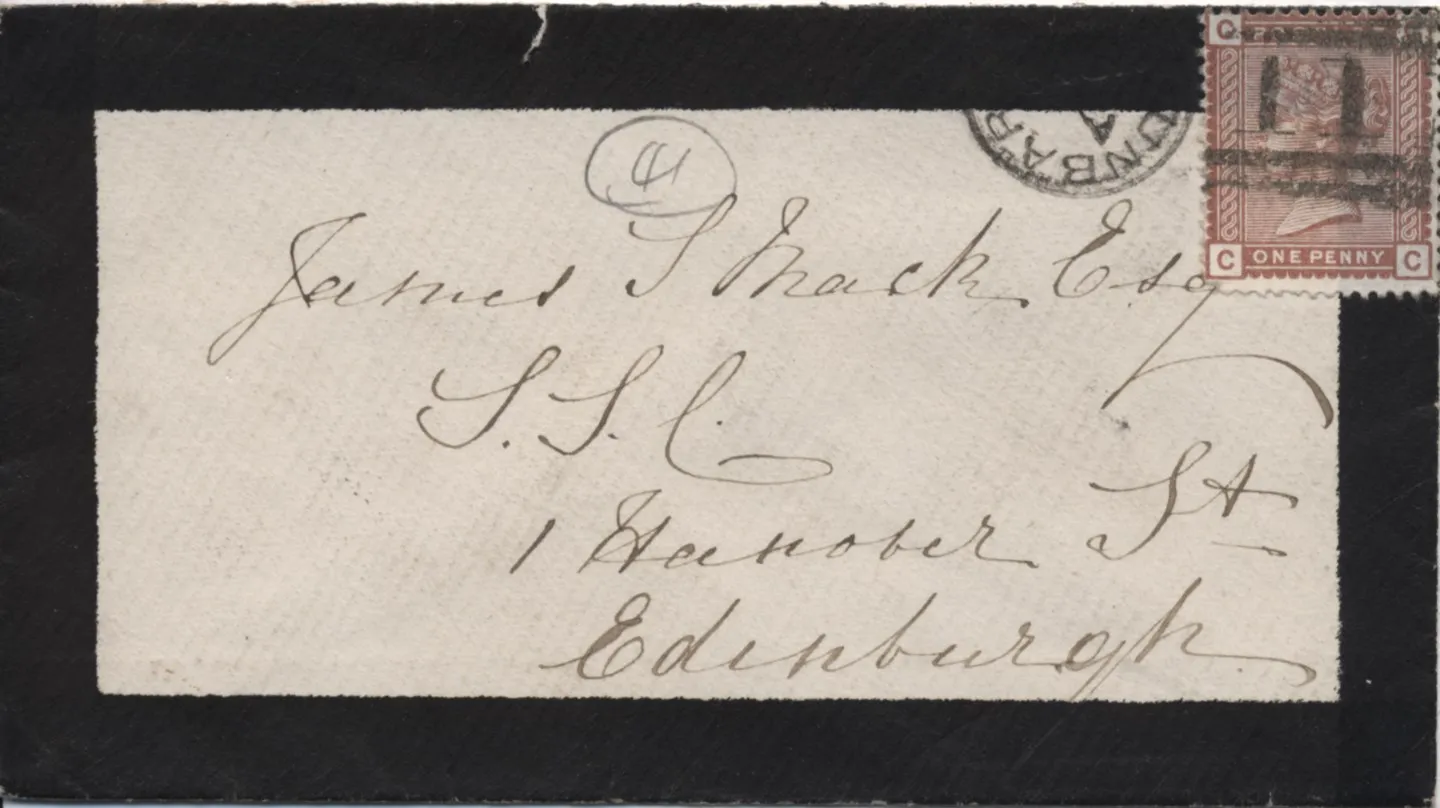 Q
ONE PENNY
C C
UNBAR
A
4
James S Mack Esq
S. S. C.
1 Hanover St
Edinburgh